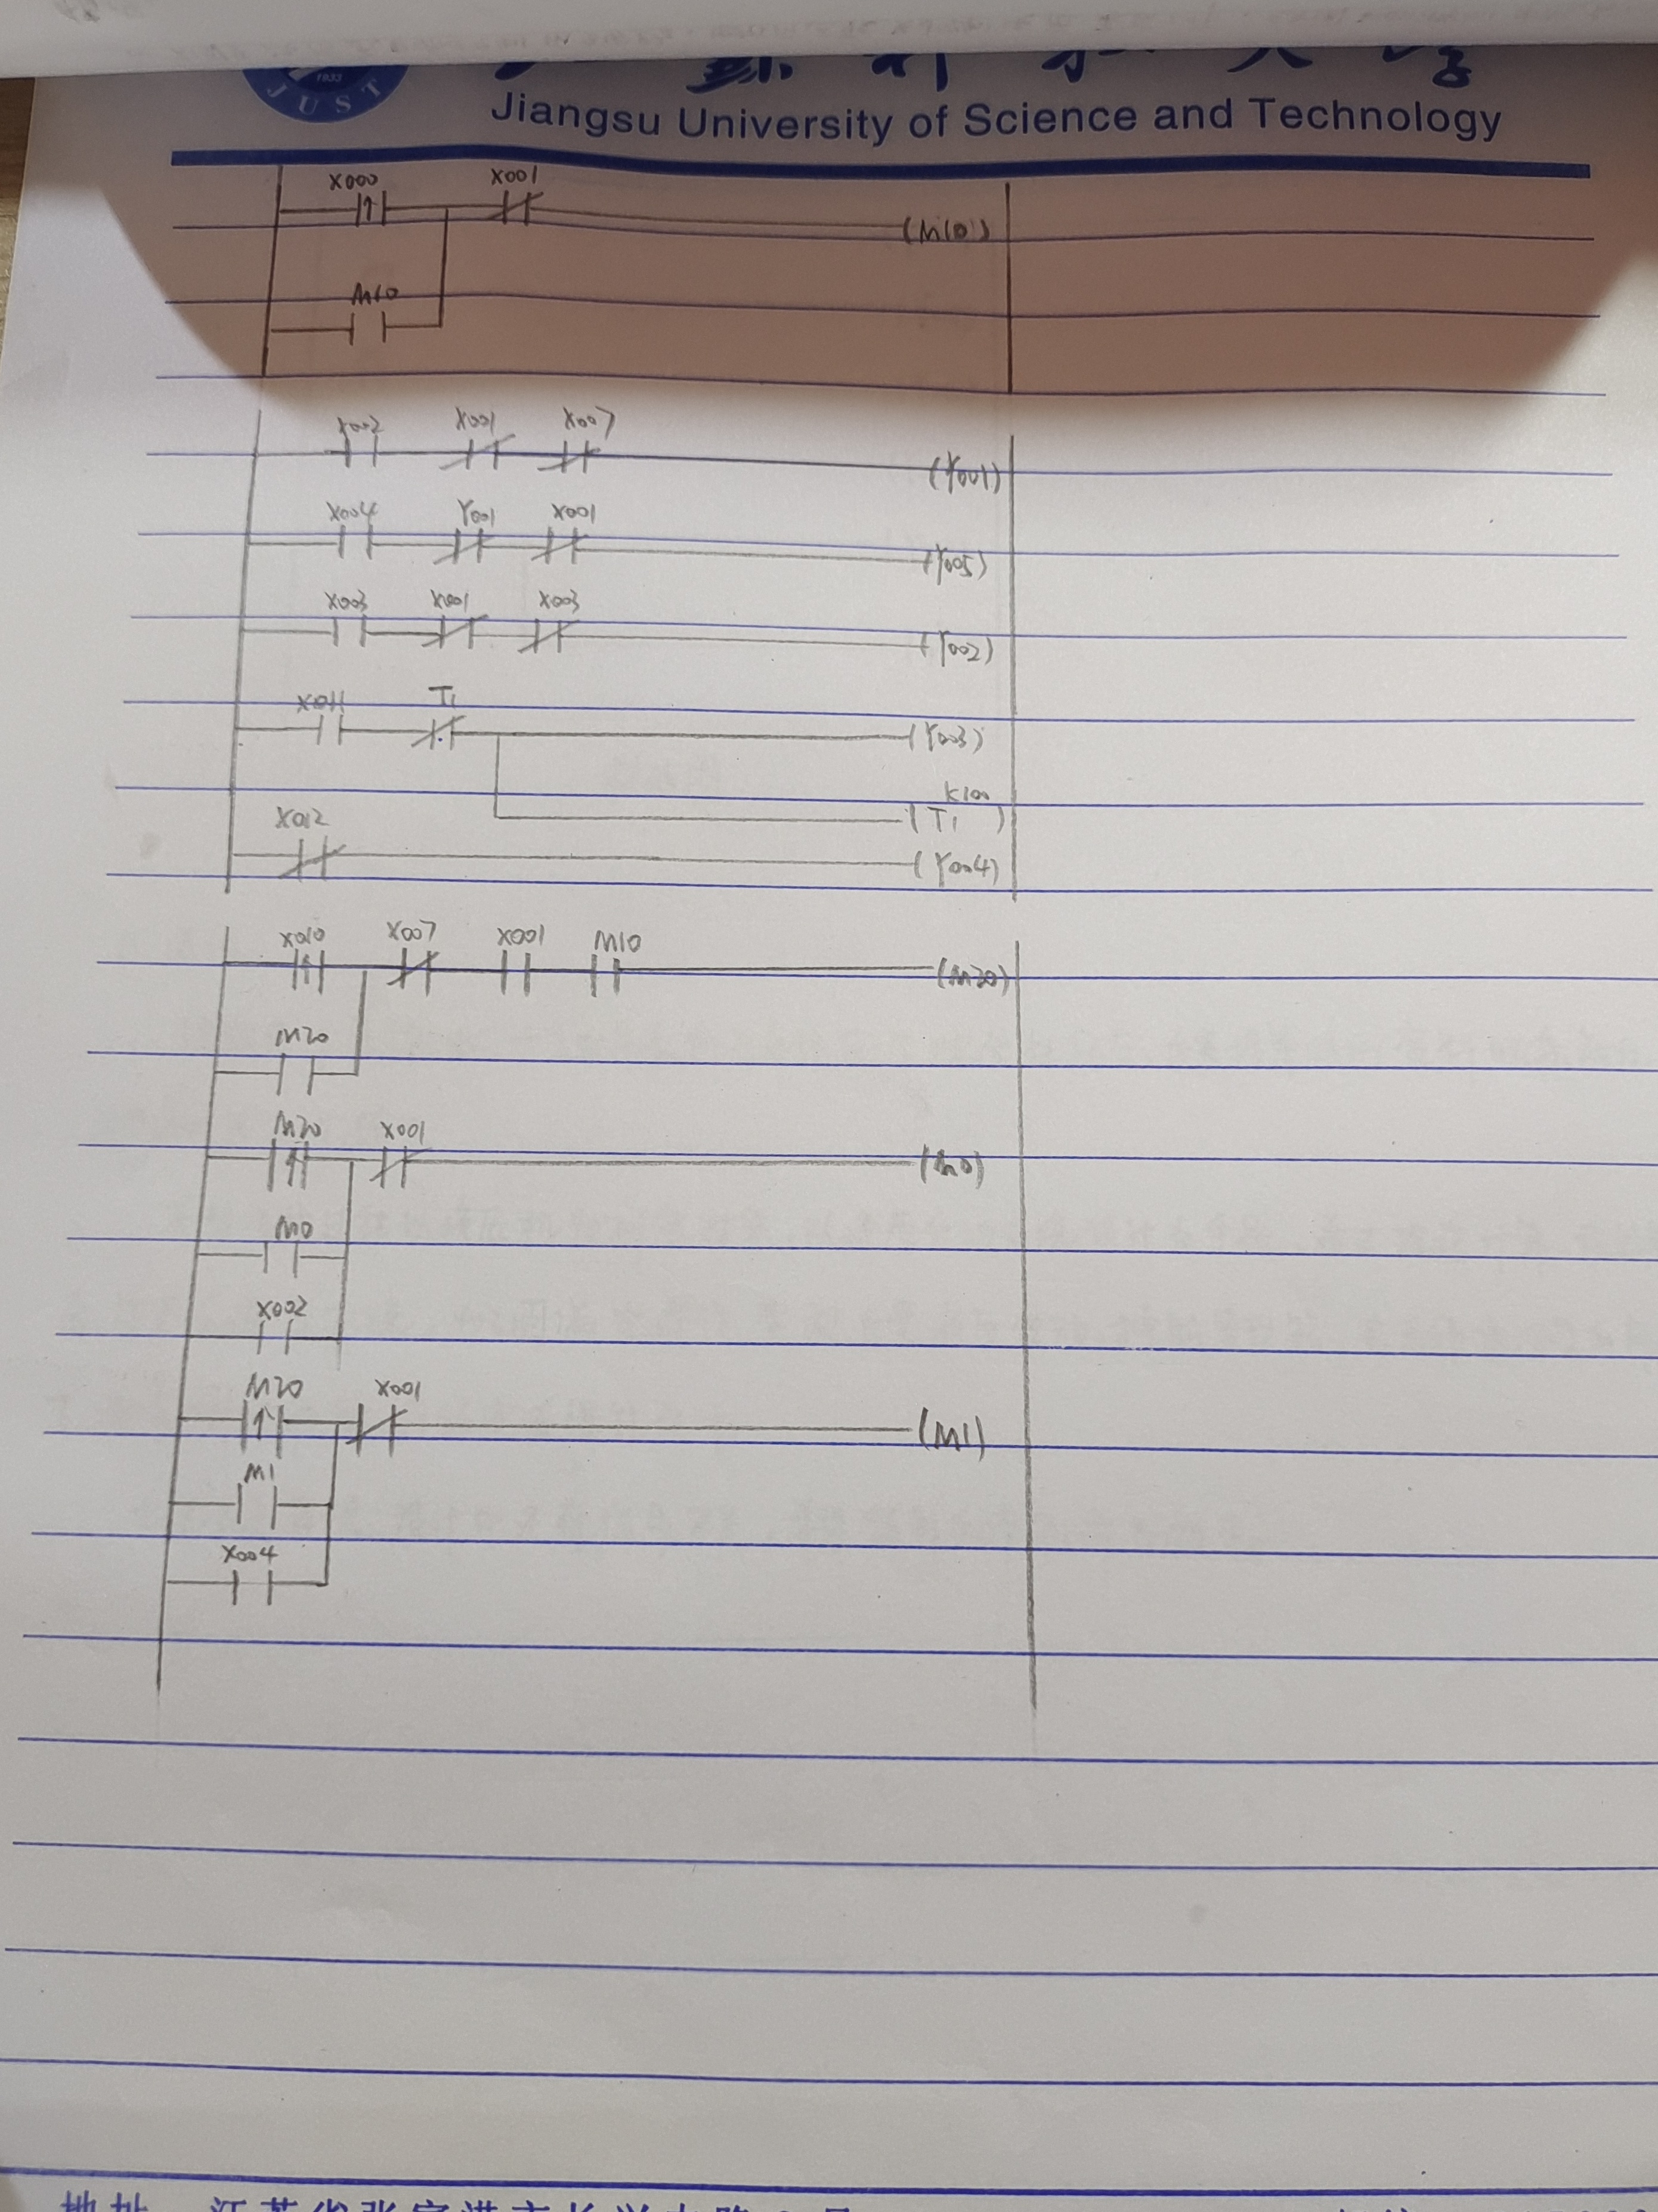 1933
JUST
Jiangsu University of Science and Technology
X000 X001
(M10)
M10
X002 X001 X007
(Y001)
X004 Y001 X001
(Y005)
X003 X001 X003
(Y002)
X011 T1
(Y003)
K100
(T1 )
X012
(Y004)
X010 X007 X001 M10
(M20)
M20
M20 X001
(M0)
M0
X002
M20 X001
(M1)
M1
X004